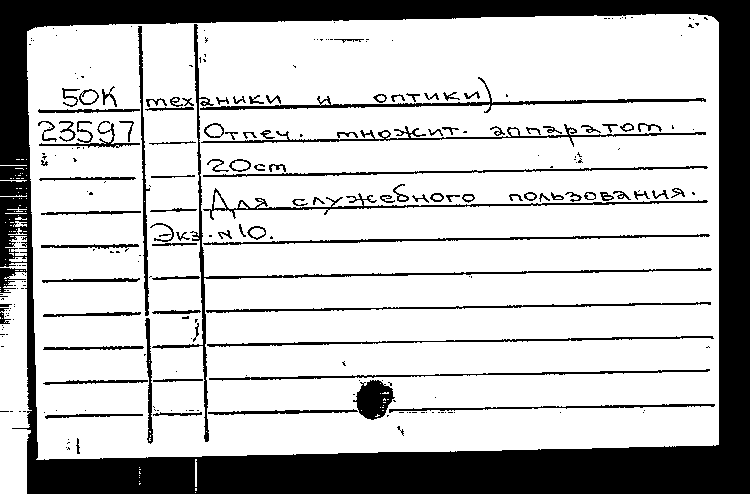 50К механики и оптики).
23597 Отпеч. множит. аппаратом.
20cm
Для служебного пользования.
Экз. №10.